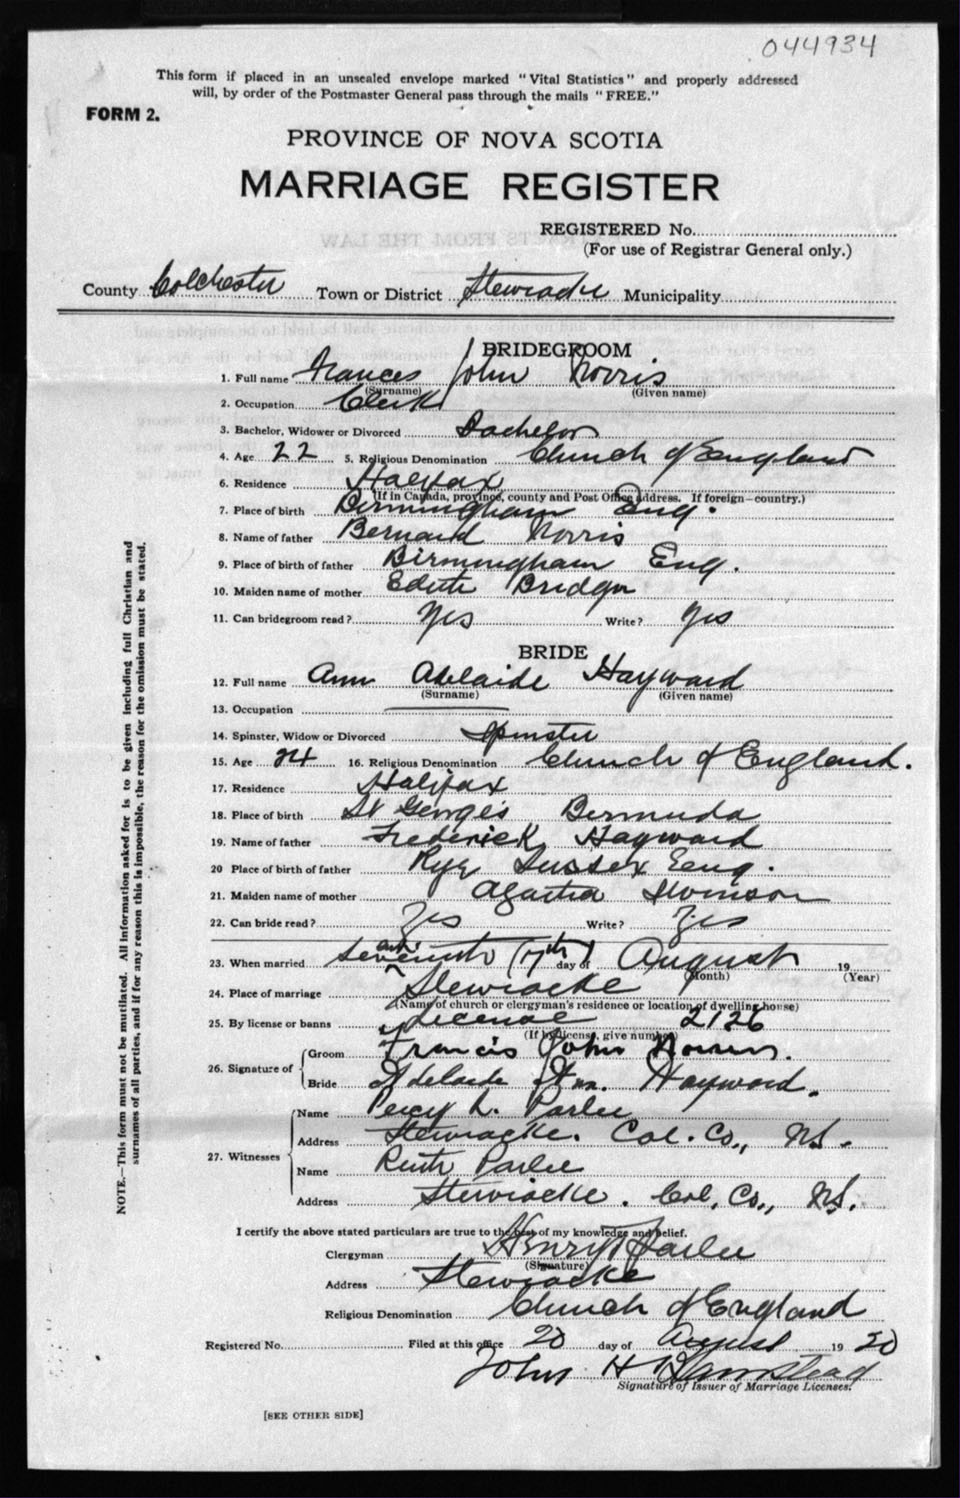 044934
This form if placed in an unsealed envelope marked "Vital Statistics" and properly addressed
will, by order of the Postmaster General pass through the mails "FREE."
FORM 2.
PROVINCE OF NOVA SCOTIA
MARRIAGE REGISTER
REGISTERED No.
(For use of Registrar General only.)
County Colchester Town or District Stewiacke Municipality
BRIDEGROOM
1. Full name Frances John Norris
(Surname) (Given name)
2. Occupation Clerk
3. Bachelor, Widower or Divorced Bachelor
4. Age 22 5. Religious Denomination Church of England
6. Residence Halifax
(If in Canada, province, county and Post Office address. If foreign—country.)
7. Place of birth Birmingham Eng.
8. Name of father Bernard Norris
9. Place of birth of father Birmingham Eng.
10. Maiden name of mother Edith
11. Can bridegroom read? Yes Write? Yes
BRIDE
12. Full name Ann Adelaide Hayward
(Surname) (Given name)
13. Occupation
14. Spinster, Widow or Divorced Spinster
15. Age 24 16. Religious Denomination Church of England.
17. Residence Halifax
18. Place of birth St George's Bermuda
19. Name of father Frederick Hayward
20 Place of birth of father Rye Sussex Eng.
21. Maiden name of mother Agatha Swinson
22. Can bride read? Yes Write? Yes
23. When married (17th) day of August 19
(Month) (Year)
24. Place of marriage Stewiacke
(Name of church or clergyman's residence or location of dwelling house)
25. By license or banns License 2126
(If by license, give number)
26. Signature of
Groom Francis John Norris.
Bride Adelaide Ann. Hayward.
27. Witnesses
Name Percy L. Parlee
Address Stewiacke. Col. Co., N.S.
Name Ruth Parlee
Address Stewiacke. Col. Co., N.S.
I certify the above stated particulars are true to the best of my knowledge and belief.
Clergyman Henry T Parlee
(Signature)
Address Stewiacke
Religious Denomination Church of England
Registered No. Filed at this office 20 day of August 1920
John H
Signature of Issuer of Marriage Licenses.
[SEE OTHER SIDE]
NOTE.—This form must not be mutilated. All information asked for is to be given including full Christian and
surnames of all parties, and if for any reason this is impossible, the reason for the omission must be stated.